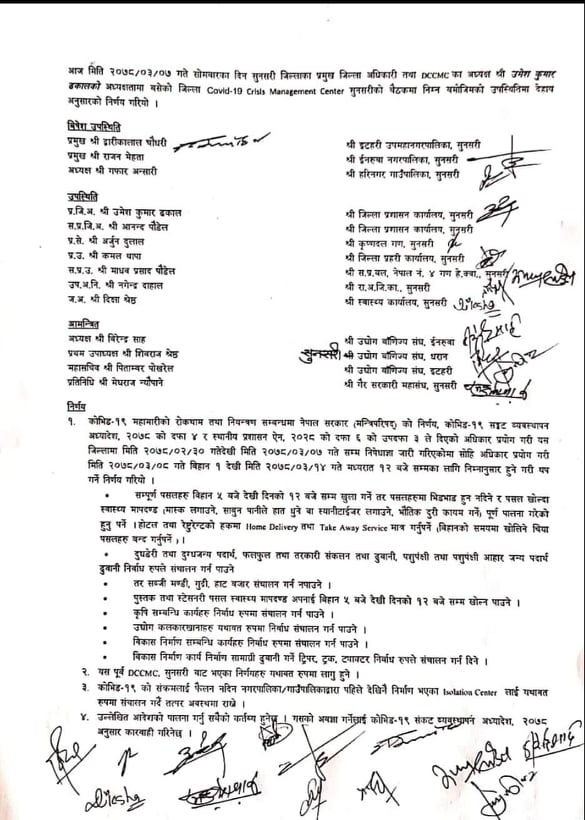 आज मिति २०७८/०३/०७ गते सोमबारका दिन सुनसरी जिल्लाका प्रमुख जिल्ला अधिकारी तथा DCCMC का अध्यक्ष श्री उमेश कुमार
ढकालको अध्यक्षतामा बसेको जिल्ला Covid-19 Crisis Management Center सुनसरीको बैठकमा निम्न बमोजिमको उपस्थितिमा देहाय
अनुसारको निर्णय गरियो ।
विशेष उपस्थिति
प्रमुख श्री द्वारीकालाल चौधरी श्री इटहरी उपमहानगरपालिका, सुनसरी
प्रमुख श्री राजन मेहता श्री ईनरुवा नगरपालिका, सुनसरी
अध्यक्ष श्री गफार अन्सारी श्री हरिनगर गाउँपालिका, सुनसरी
उपस्थिति
प्र.जि.अ. श्री उमेश कुमार ढकाल श्री जिल्ला प्रशासन कार्यालय, सुनसरी
स.प्र.जि.अ. श्री आनन्द पौडेल श्री जिल्ला प्रशासन कार्यालय, सुनसरी
प्र.से. श्री अर्जुन दुलाल श्री कृष्णदल गण, सुनसरी
प्र.उ. श्री कमल थापा श्री जिल्ला प्रहरी कार्यालय, सुनसरी
स.प्र.उ. श्री माधव प्रसाद पौडेल श्री स.प्र.बल, नेपाल नं. ४ गण हे.क्वा., सुनसरी
उप.अ.नि. श्री नगेन्द्र दाहाल श्री रा.अ.जि.का., सुनसरी
ज.अ. श्री दिक्षा श्रेष्ठ श्री स्वास्थ्य कार्यालय, सुनसरी Diksha
आमन्त्रित
अध्यक्ष श्री बिरेन्द्र साह श्री उद्योग बाणिज्य संघ, ईनरुवा
प्रथम उपाध्यक्ष श्री शिवराज श्रेष्ठ सुनसरी श्री उद्योग बाणिज्य संघ, धरान
महासचिव श्री पिताम्बर पोखरेल श्री उद्योग बाणिज्य संघ, इटहरी
प्रतिनिधि श्री मेघराज न्यौपाने श्री गैर सरकारी महासंघ, सुनसरी
निर्णय
१. कोभिड-१९ महामारीको रोकथाम तथा नियन्त्रण सम्बन्धमा नेपाल सरकार (मन्त्रिपरिषद्) को निर्णय, कोभिड-१९ सङ्कट व्यवस्थापन
अध्यादेश, २०७८ को दफा ४ र स्थानीय प्रशासन ऐन, २०२८ को दफा ६ को उपदफा ३ ले दिएको अधिकार प्रयोग गरी यस
जिल्लामा मिति २०७८/०२/३० गतेदेखी मिति २०७८/०३/०७ गते सम्म निषेधाज्ञा जारी गरिएकोमा सोहि अधिकार प्रयोग गरी
मिति २०७८/०३/०८ गते बिहान १ देखी मिति २०७८/०३/१४ गते मध्यरात १२ बजे सम्मका लागि निम्नानुसार हुने गरी थप
गर्ने निर्णय गरियो ।
• सम्पूर्ण पसलहरु बिहान ५ बजे देखी दिनको १२ बजे सम्म खुला गर्ने तर पसलहरुमा भिडभाड हुन नदिने र पसल खोल्दा
स्वास्थ्य मापदण्ड (मास्क लगाउने, साबुन पानीले हात धुने वा स्यानीटाईजर लगाउने, भौतिक दुरी कायम गर्ने) पूर्ण पालना गरेको
हुनु पर्ने । होटल तथा रेष्टुरेन्टको हकमा Home Delivery तथा Take Away Service मात्र गर्नुपर्ने (बिहानको समयमा खोलिने चिया
पसलहरु बन्द गर्नुपर्ने) ।
• दुधडेरी तथा दुग्धजन्य पदार्थ, फलफुल तथा तरकारी संकलन तथा ढुवानी, पशुपंक्षी तथा पशुपंक्षी आहार जन्य पदार्थ
ढुवानी निर्वाध रुपले संचालन गर्न पाउने
• तर सब्जी मण्डी, गुद्री, हाट बजार संचालन गर्न नपाउने ।
• पुस्तक तथा स्टेसनरी पसल स्वास्थ्य मापदण्ड अपनाई बिहान ५ बजे देखी दिनको १२ बजे सम्म खोल्न पाउने ।
• कृषि सम्बन्धि कार्यहरु निर्वाध रुपमा संचालन गर्न पाउने ।
• उद्योग कलकारखानाहरु यथावत रुपमा निर्वाध संचालन गर्न पाउने ।
• विकास निर्माण सम्बन्धि कार्यहरु निर्वाध रुपमा संचालन गर्न पाउने ।
• विकास निर्माण कार्य निर्माण सामाग्री ढुवानी गर्ने ट्रिपर, ट्रक, ट्याक्टर निर्वाध रुपले संचालन गर्न दिने ।
२. यस पूर्व DCCMC, सुनसरी बाट भएका निर्णयहरु यथावत रुपमा लागु हुने ।
३. कोभिड-१९ को संक्रमलाई फैलन नदिन नगरपालिका/गाउँपालिकाद्वारा पहिले देखिनै निर्माण भएका Isolation Center लाई यथावत
रुपमा संचालन गर्दै तत्पर अवस्थमा राख्ने ।
४. उल्लेखित आदेशको पालना गर्नु सबैको कर्तव्य हुनेछ । यसको अवज्ञा गर्नेलाई कोभिड-१९ संकट व्यवस्थापन अध्यादेश, २०७८
अनुसार कारवाही गरिनेछ ।
Diksha